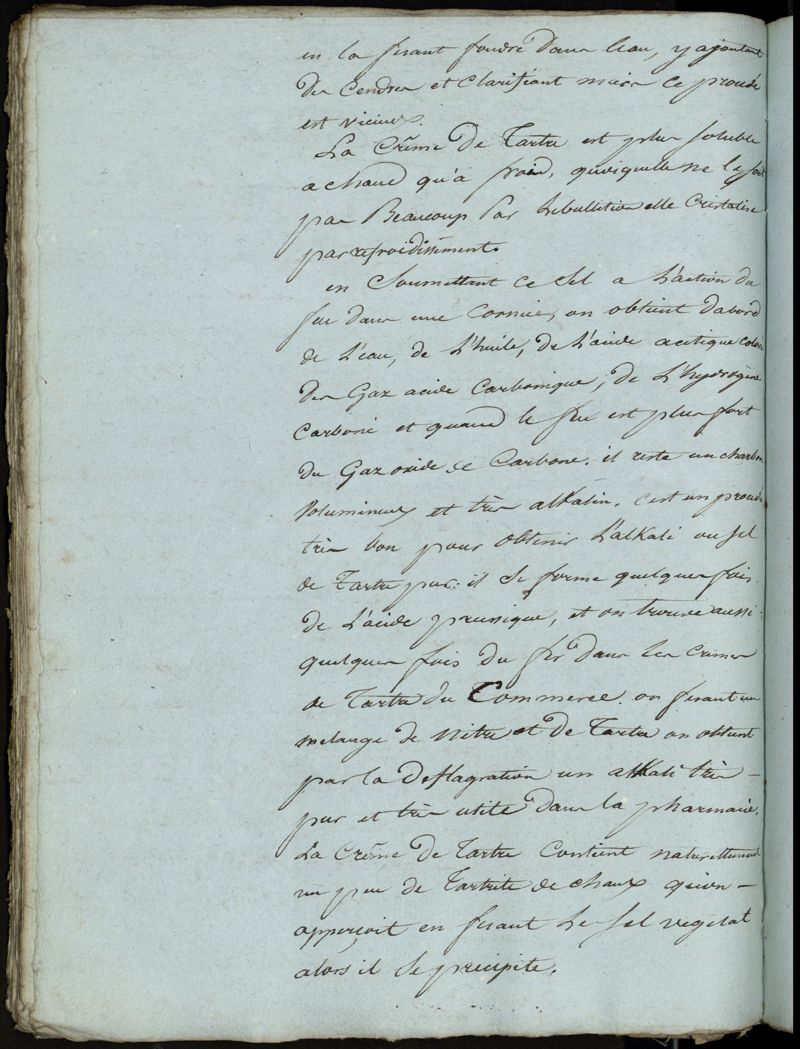 en la fesant fondre dans leau, y ajoutant
des Cendres et Clarifiant mais ce procédé
est vicieux.
La Crême de Tartre est plus soluble
a chaud qu'à froid, quoiquelle ne le soit
pas Beaucoup Par Lebullition elle Cristalise
par refroidissement.
en Soumettant ce Sel a L'action du
feu dans une Cornue, on obtient dabord
de L'eau, de L'huile, de L'acide acetique coloré
des Gaz acide Carbonique, de L'hydrogène
Carboné et quand le feu est plus fort
du Gaz oxide de Carbone. il reste un charbon
Volumineux et très alkalin. c'est un procédé
très bon pour obtenir L'alkali ou sel
de Tartre pur. il se forme quelques fois
de L'acide prussique, et on trouve aussi
quelques fois du fer dans les Crêmes
de Tartre du Commerce. en fesant un
melange de nitre et de Tartre on obtient
par la Deflagration un alkali très –
pur et très usité dans la pharmacie.
La Crême de Tartre Contient naturellement
un peu de Tartrite de chaux qu'on –
apperçoit en fesant Le Sel vegetal
alors il Se precipite.